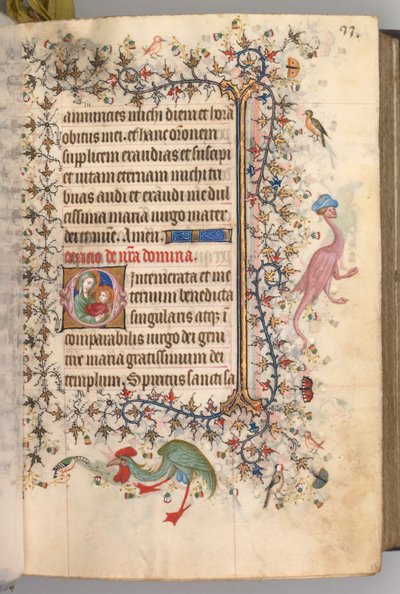 annuncies michi diem et hora
obitus mei. et hanc orõnem
supplicem exaudias et suscipi
et vitam eternam michi tri
buas audi et exaudi me dul
cissima maria virgo mater
dei et mie. Amen.
oracio de nr̃a domina.
O intemerata et in e
ternum benedicta
singularis atqz ĩ
comparabilis virgo dei geni
trix maria gratissimum dei
templum. Spiritus sancti sa